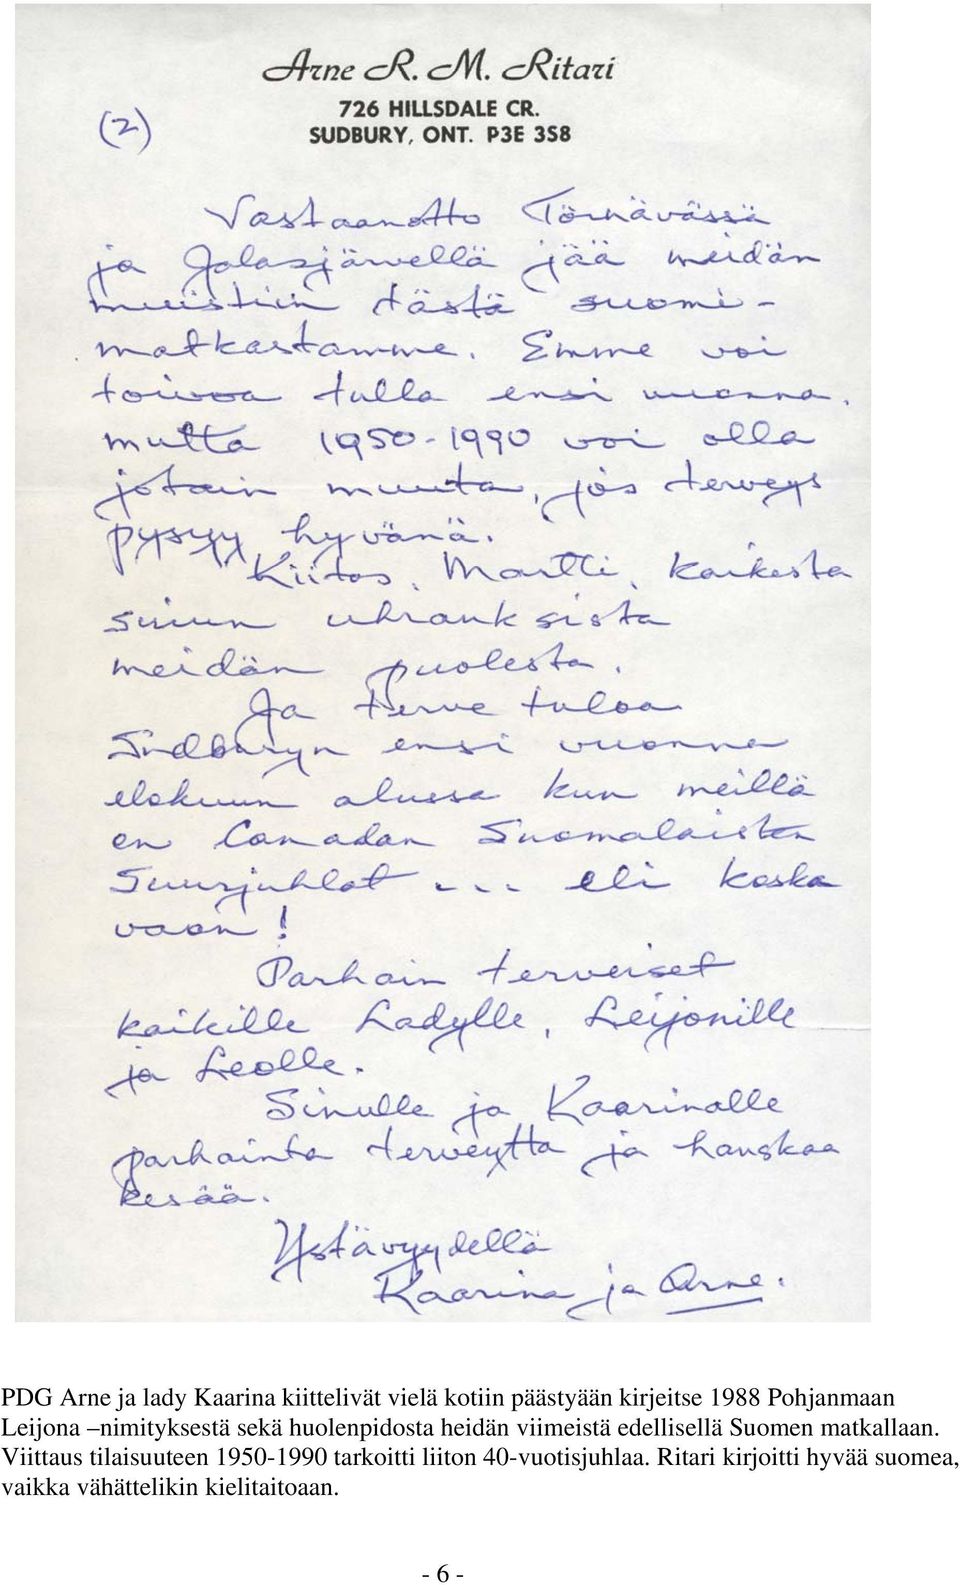 Arne R. M. Ritari
726 HILLSDALE CR.
(2) SUDBURY, ONT. P3E 3S8
Vastaanotto Törnävässä
ja Jalasjärvellä jää meidän
muistiin tästä suomi-
matkastamme. Emme voi
toivoa tulla ensi vuonna,
mutta 1950-1990 voi olla
jotain muuta, jos terveys
pysyy hyvänä.
Kiitos, Martti, kaikesta
sinun uhrauksista
meidän puolesta.
Ja terve tuloa
Sudburyn ensi vuonna
elokuun alussa kun meillä
on Canadan Suomalaisten
Suurjuhlat - - - eli koska
vaan!
Parhain terveiset
kaikille Ladylle, Leijonille
ja Leolle.
Sinulle ja Kaarinalle
parhainta terveyttä ja hauskaa
kesää.
Ystävyydellä
Kaarina ja Arne.
PDG Arne ja lady Kaarina kiittelivät vielä kotiin päästyään kirjeitse 1988 Pohjanmaan
Leijona –nimityksestä sekä huolenpidosta heidän viimeistä edellisellä Suomen matkallaan.
Viittaus tilaisuuteen 1950-1990 tarkoitti liiton 40-vuotisjuhlaa. Ritari kirjoitti hyvää suomea,
vaikka vähättelikin kielitaitoaan.
- 6 -